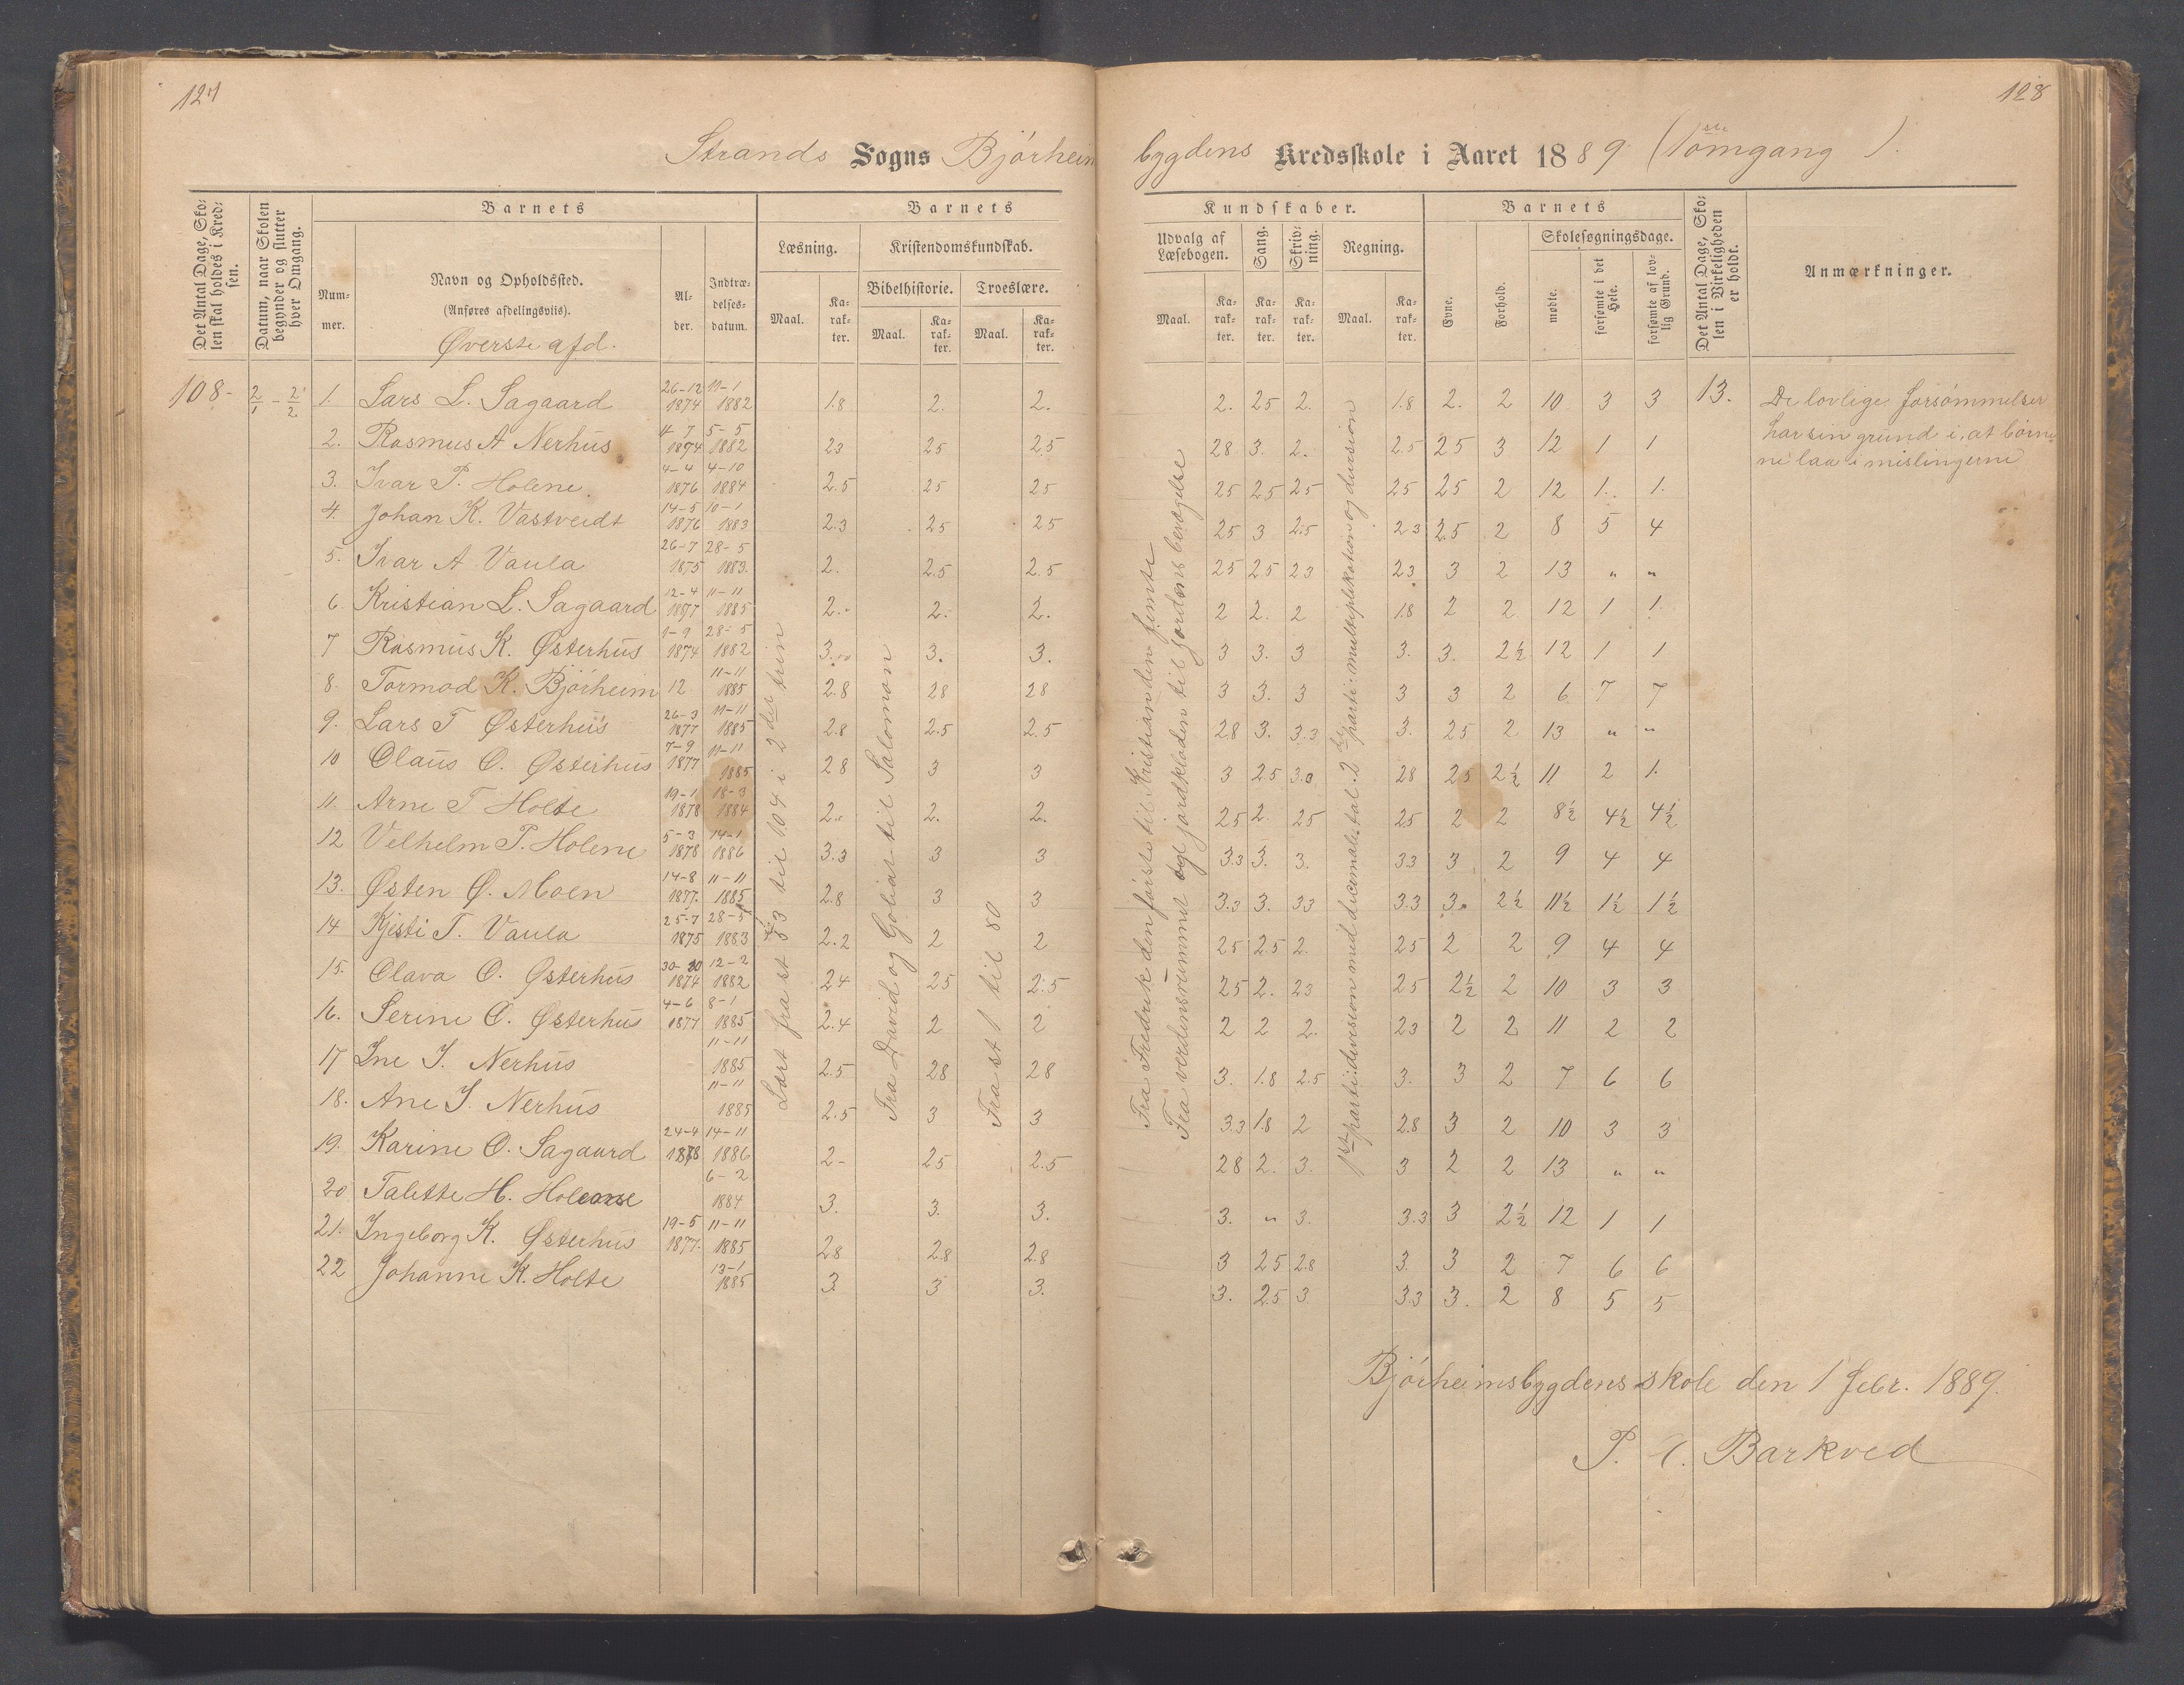 127
128
Strands Sogns Bjórheim bygdens Kredsskole i Aaret 1889 (1ste omgang).
Det Antal Dage, Skolen skal holdes i Kredsen.
Datum, naar Skolen begynder og slutter hver Omgang.
Barnets
Nummer.
Navn og Opholdssted.
(Anføres afdelingsviis).
Øverste afd.
Alder.
Indtrædelsesdatum.
Barnets Kundskaber.
Læsning.
Kristendomskundskab.
Bibelhistorie.
Troeslære.
Udvalg af Læsebogen.
Sang.
Skrivning.
Regning.
Maal. Karakter. Maal. Karakter. Maal. Karakter.
Maal. Karakter. Karakter. Karakter. Maal. Karakter.
Barnets
Evne.
Forhold.
Skolesøgningsdage.
mødte.
forsømte i det Hele.
forsømte af lovlig Grund.
Det Antal Dage, Skolen i Virkeligheden er holdt.
Anmærkninger.
108- 2/1 - 2/2
1. Lars L. Sagaard 26-12 1874 11-1 1882 1.8 2. 2. 2. 25 2. 1.8 2. 2 10 3 3 13.
2. Rasmus A Nerhus 4-7 1874 5-5 1882 23 25 25 28 3. 2. 2.5 25 3 12 1 1
3. Ivar P. Holene. 4-4 1876 4-10 1884 2.5 25 25 25 25 25 25 25 2 12 1. 1.
4. Johan K. Vastveidt 14-5 1876 10-1 1883 2.3 25 25 25 3 2.5 23 2.5 2 8 5 4
5. Ivar A Vaula 26-7 1875 28-5 1883. 2. 2.5 2.5 25 25 23 23 3 2 13 " "
6. Kristian L. Sagaard 12-4 1877 11-11 1885 2. 2. 2. 2 2. 2 1.8 2 2 12 1 1.
7 Rasmus K. Østerhus 1-9 1874 28-5 1882 3. 3. 3. 3 3. 3 3. 3. 2½ 12 1 1
8. Tormod K. Bjórheim 12 11-11 1885 2.8 28 28 3 3. 3 3 3 2 6 7 7
9. Lars T Østerhus 26-3 1877 11-11 1885 2.8 2.5 2.5 28 3. 3.3 3. 25 2 13 " "
10 Olaus O. Østerhus 7-9 1877 11-11 1885 28 3 3 3 2.5 3.0 28 25 2½ 11 2 1.
11. Arne T Holte 19-1 1878 18-3 1884 2. 2. 2. 25 2. 25 25 2 2 8½ 4½ 4½
12 Velhelm P. Holene 5-3 1878 14-1 1886 3.3 3 3 3.3 3. 3. 33 3 2 9 4 4
13. Østen Ø. Moen 14-8 1877. 11-11 1885 2.8 3 3 3.3 3. 33 3.3 3. 2½ 11½ 1½ 1½
14 Kjesti T. Vaula 25-7 1875 28-5 1883 2.2 2 2 25 2.5 2. 25 2 2 9 4 4
15. Olava O. Østerhus 30- 1874 12-2 1882 24 25 2.5 25 2. 23 25 2½ 2 10 3 3
16. Serine O. Østerhus 4-6 1877 8-1 1885 2.4 2 2 2 2 2. 23 2 2 11 2 2
17 Ine J. Nerhus 11-11 1885 2.5 28 28 3. 1.8 2.5 3. 3 2 7 6 6
18. Ane J. Nerhus 11-11 1885 2.5 3 3 3.3 1.8 2 2.8 3 2 10 3 3
19. Karine O. Sagaard 24-4 1878 14-11 1886 2- 25 2.5 28 2. 3. 3 2 2 13 " "
20 Talette H. 6-2 1884 3. 3. 3. 3. " 3. 3.3 3 2½ 12 1 1
21. Ingeborg K. Østerhus 19-5 1877. 11-11 1885 28 2.8 2.8 3 25 2.8 3. 3 2 7 6 6
22 Johanne K. Holte 13-1 1885 3. 3 3. 3. 25 3 3.3 3. 2 8 5 5
Læst fra st 53 til 104 i 2det trin
Fra David og Goliat til Salomon
Fra st 1 til 80
Fra Fredrik den første til Kristian den femte
Fra verdensrummet og jordkloden til jordens bevægelse
1ste parti: division med decimaltal. 2det parti: multiplikation og division
De lovlige forsömmelser
har sin grund i, at börne-
ne laa i mislingerne
Bjórheimsbygdens skole den 1 febr. 1889.
P. Barkved